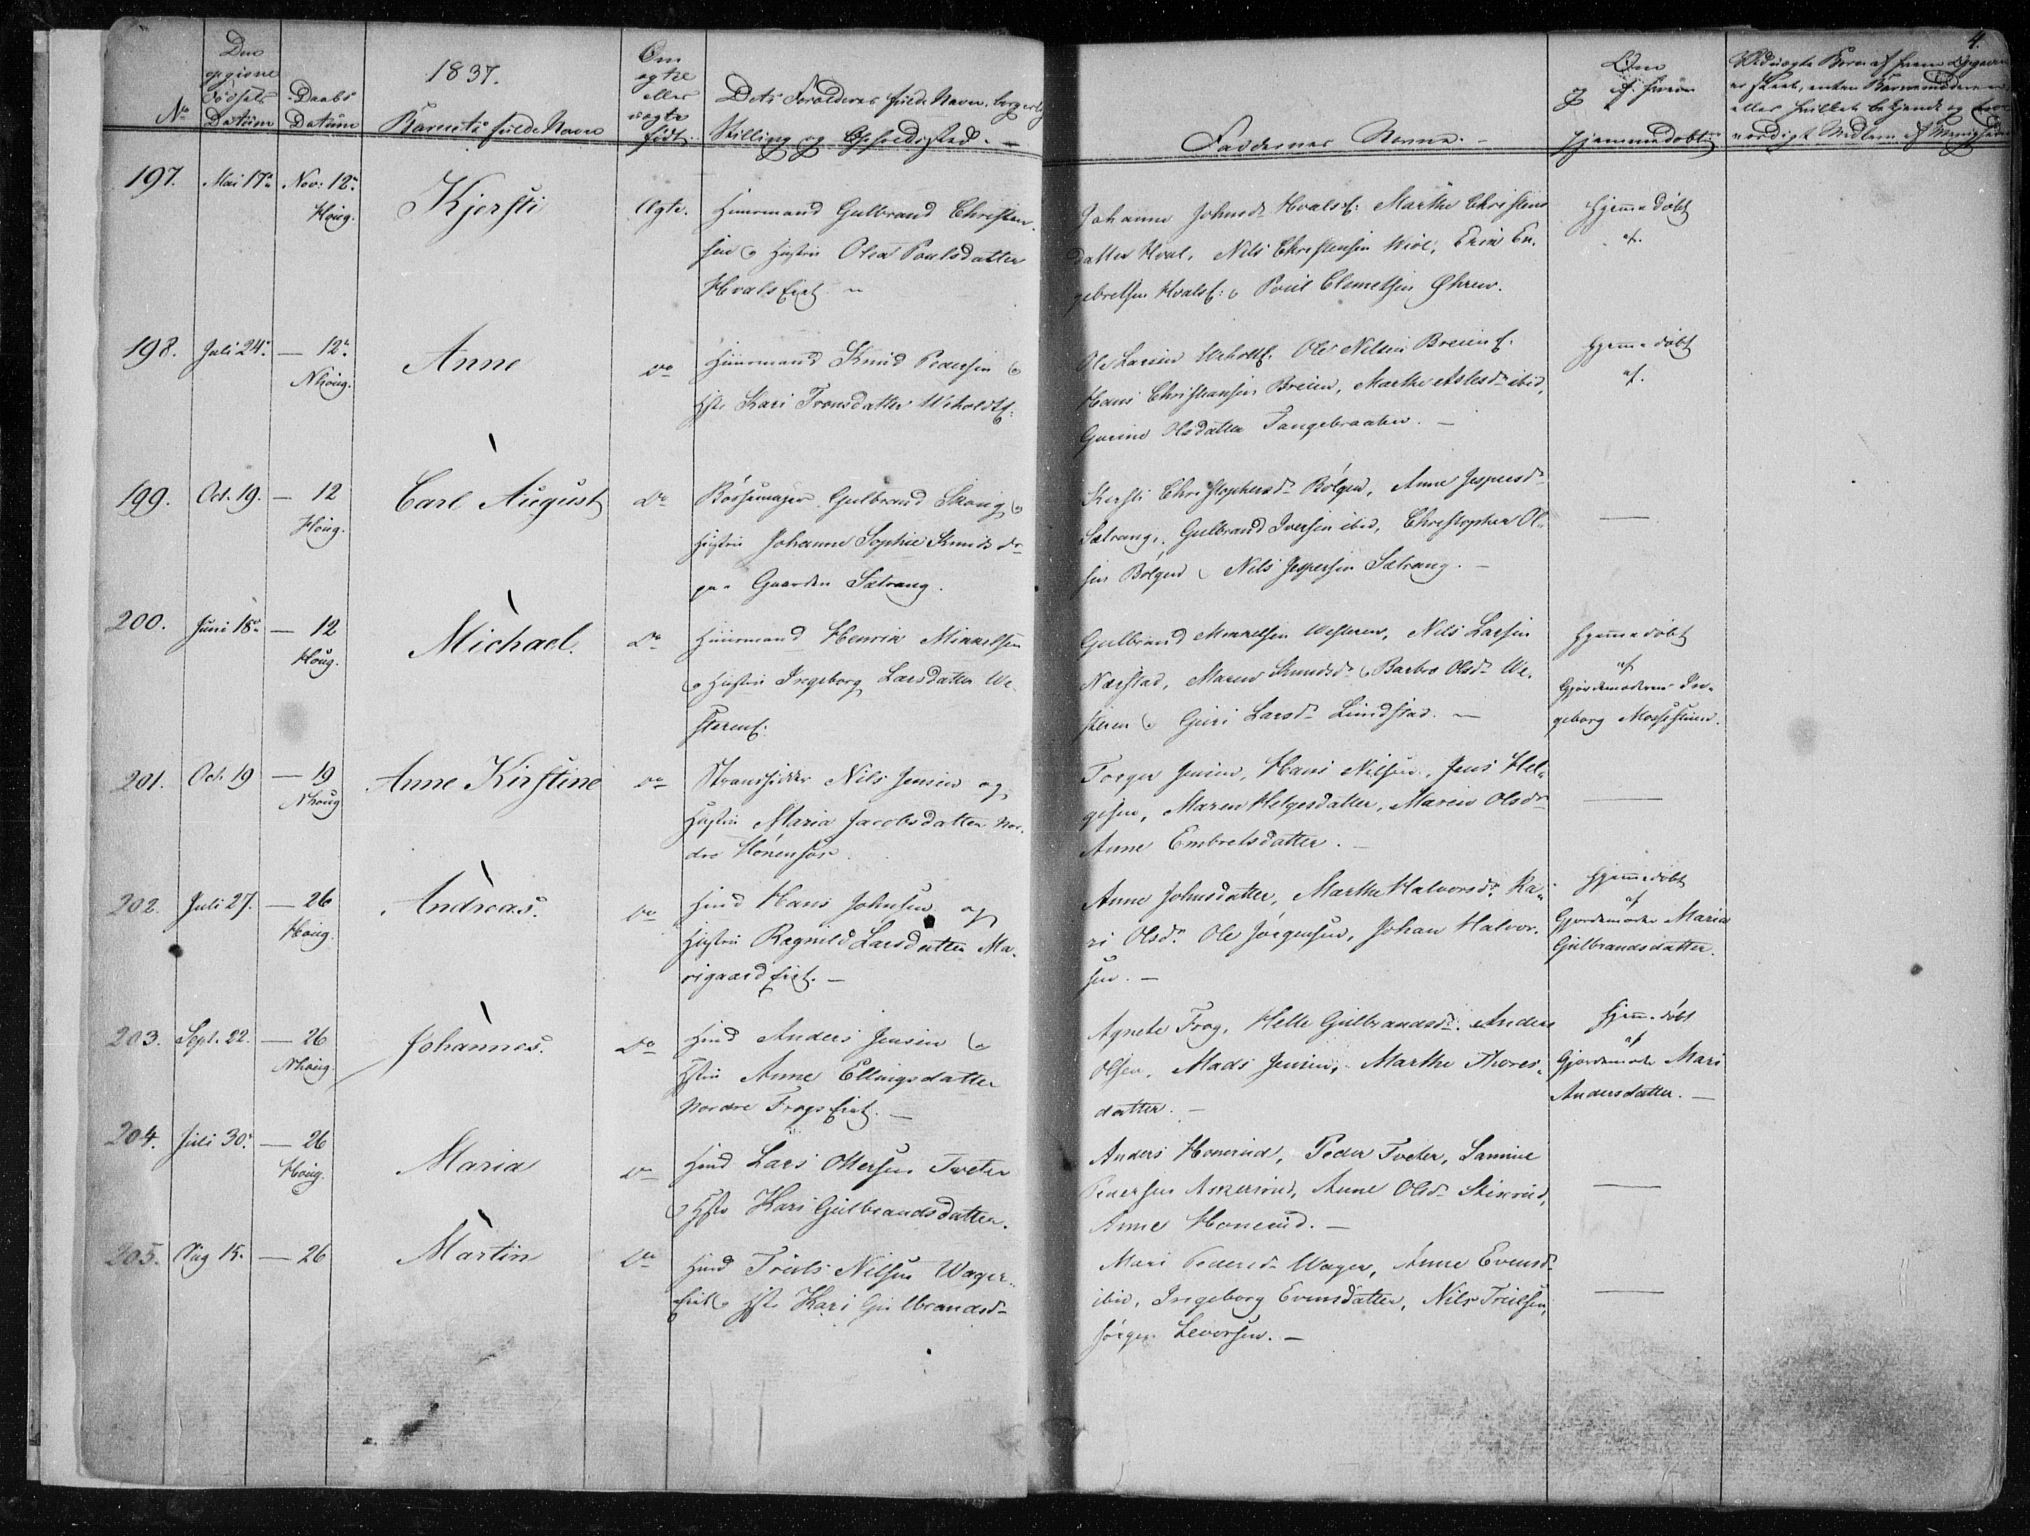 4.
Den
opgivne
Fødsels
Datum
No
Daabs
Datum
1837.
Barnets fulde Navn
Om
ægte
eller
uægte
født.
Dets Forældres fulde Navn, borgerlig
Stilling og Opholdsted.
Faddernes Navne.
Om
af hvem
hjemmedøbt
197. Mai 17de Nov: 12te Kjersti Ægte. Huusmand Gulbrand Christen-
Houg.
sen & Hustru Olea Poulsdatter
Hvalseiet
Johanne Johnsdr Hvalsf: Marthe Christens
datter Hval, Nils Christensen Hvol, Erik En-
gebretsen Hvalsf: & Poul Clemetsen Øhren.
Hjemmedøbt
af.
198. Juli 24de — 12te Anne Do Huusmand Knud Pedersen &
Nhoug.
Hstr Kari Tronsdatter
Ole Larsen Ole Nilsen Breien
Hans Christiansen Breien, Marthe Aslesdr ibid,
Gurine Olsdatter Tangebraaten. —
Hjemmedøbt
af.
199. Oct. 19. — 12 Carl August Do Bøssemager Gulbrand Skoug &
Houg.
Hustru Johanne Sophie Knuds dr
paa Gaarden Sætrang.
Kersti Christophersdr Bølgen, Anne Jespersdr
Sætrang, Gulbrand Iversen ibid, Christopher Ol-
sen Bølgen & Nils Jespersen Sætrang. —
200. Juni 18de — 12 Michael. Do Huusmand Henrik Mikkelsen
Houg.
& Hustru Ingeborg Larsdatter We-
sternf:
Gulbrand Mikkelsen Westeren, Nils Larsen
Nærstad, Maren Knudsdr & Barbro Olsdr We-
steren & Guri Larsdr Lundstad. —
Hjemmedøbt
af
Gjordemoderen In-
geborg Moesstuen.
201. Oct. 19 — 19 Anne Kirstine Do Strandsidder Nils Jensen og
Nhoug
Hustru Maria Jacobsdatter Nor-
dre Hønenfos.
Torger Jensen, Hans Nilsen, Jens Hel-
gesen, Maren Helgesdatter, Maren Olsdr
Anne Embretsdatter. —
202. Juli 27. — 26 Andreas. Do Hmd Hans Johnsen og
Houg.
Hustru Ragnild Larsdatter Ma-
rigaardeiet. —
Anne Johnsdatter, Marthe Halvorsdr Ka-
ri Olsdr Ole Jørgensen, Johan Halvor-
sen. —
Hjemmedøbt
af
Gjordemoder Maria
Gulbrandsdatter.
203. Sept. 22. — 26 Johannes. Do Hmd Anders Jensen &
Nhoug
Hstru Anne Ellingsdatter
Nordre Frogseiet. —
Agnete Frog, Helle Gulbrandsdr Anders
Olsen, Mads Jensen, Marthe Thores-
datter. —
Hjemmedøbt
af
Gjordemoder Mari
Andersdatter. —
204. Juli 30. — 26 Maria Do Hmd Lars Ottersen Tveter
Houg.
& Hstr Kari Gulbrandsdatter.
Anders Honerud, Peder Tveter, Samuel
Pedersen Askerud, Anne Olsdr Stixrud,
Anne Honerud. —
205. Aug 15. — 26 Martin Do Hmd Truls Nilsen Wager-
eiet & Hstr Kari Gulbrandsdr
Mari Pedersdr Wager, Anne Evensdr
ibid, Ingeborg Evensdatter, Nils Trulsen,
Jørgen Leversen. —